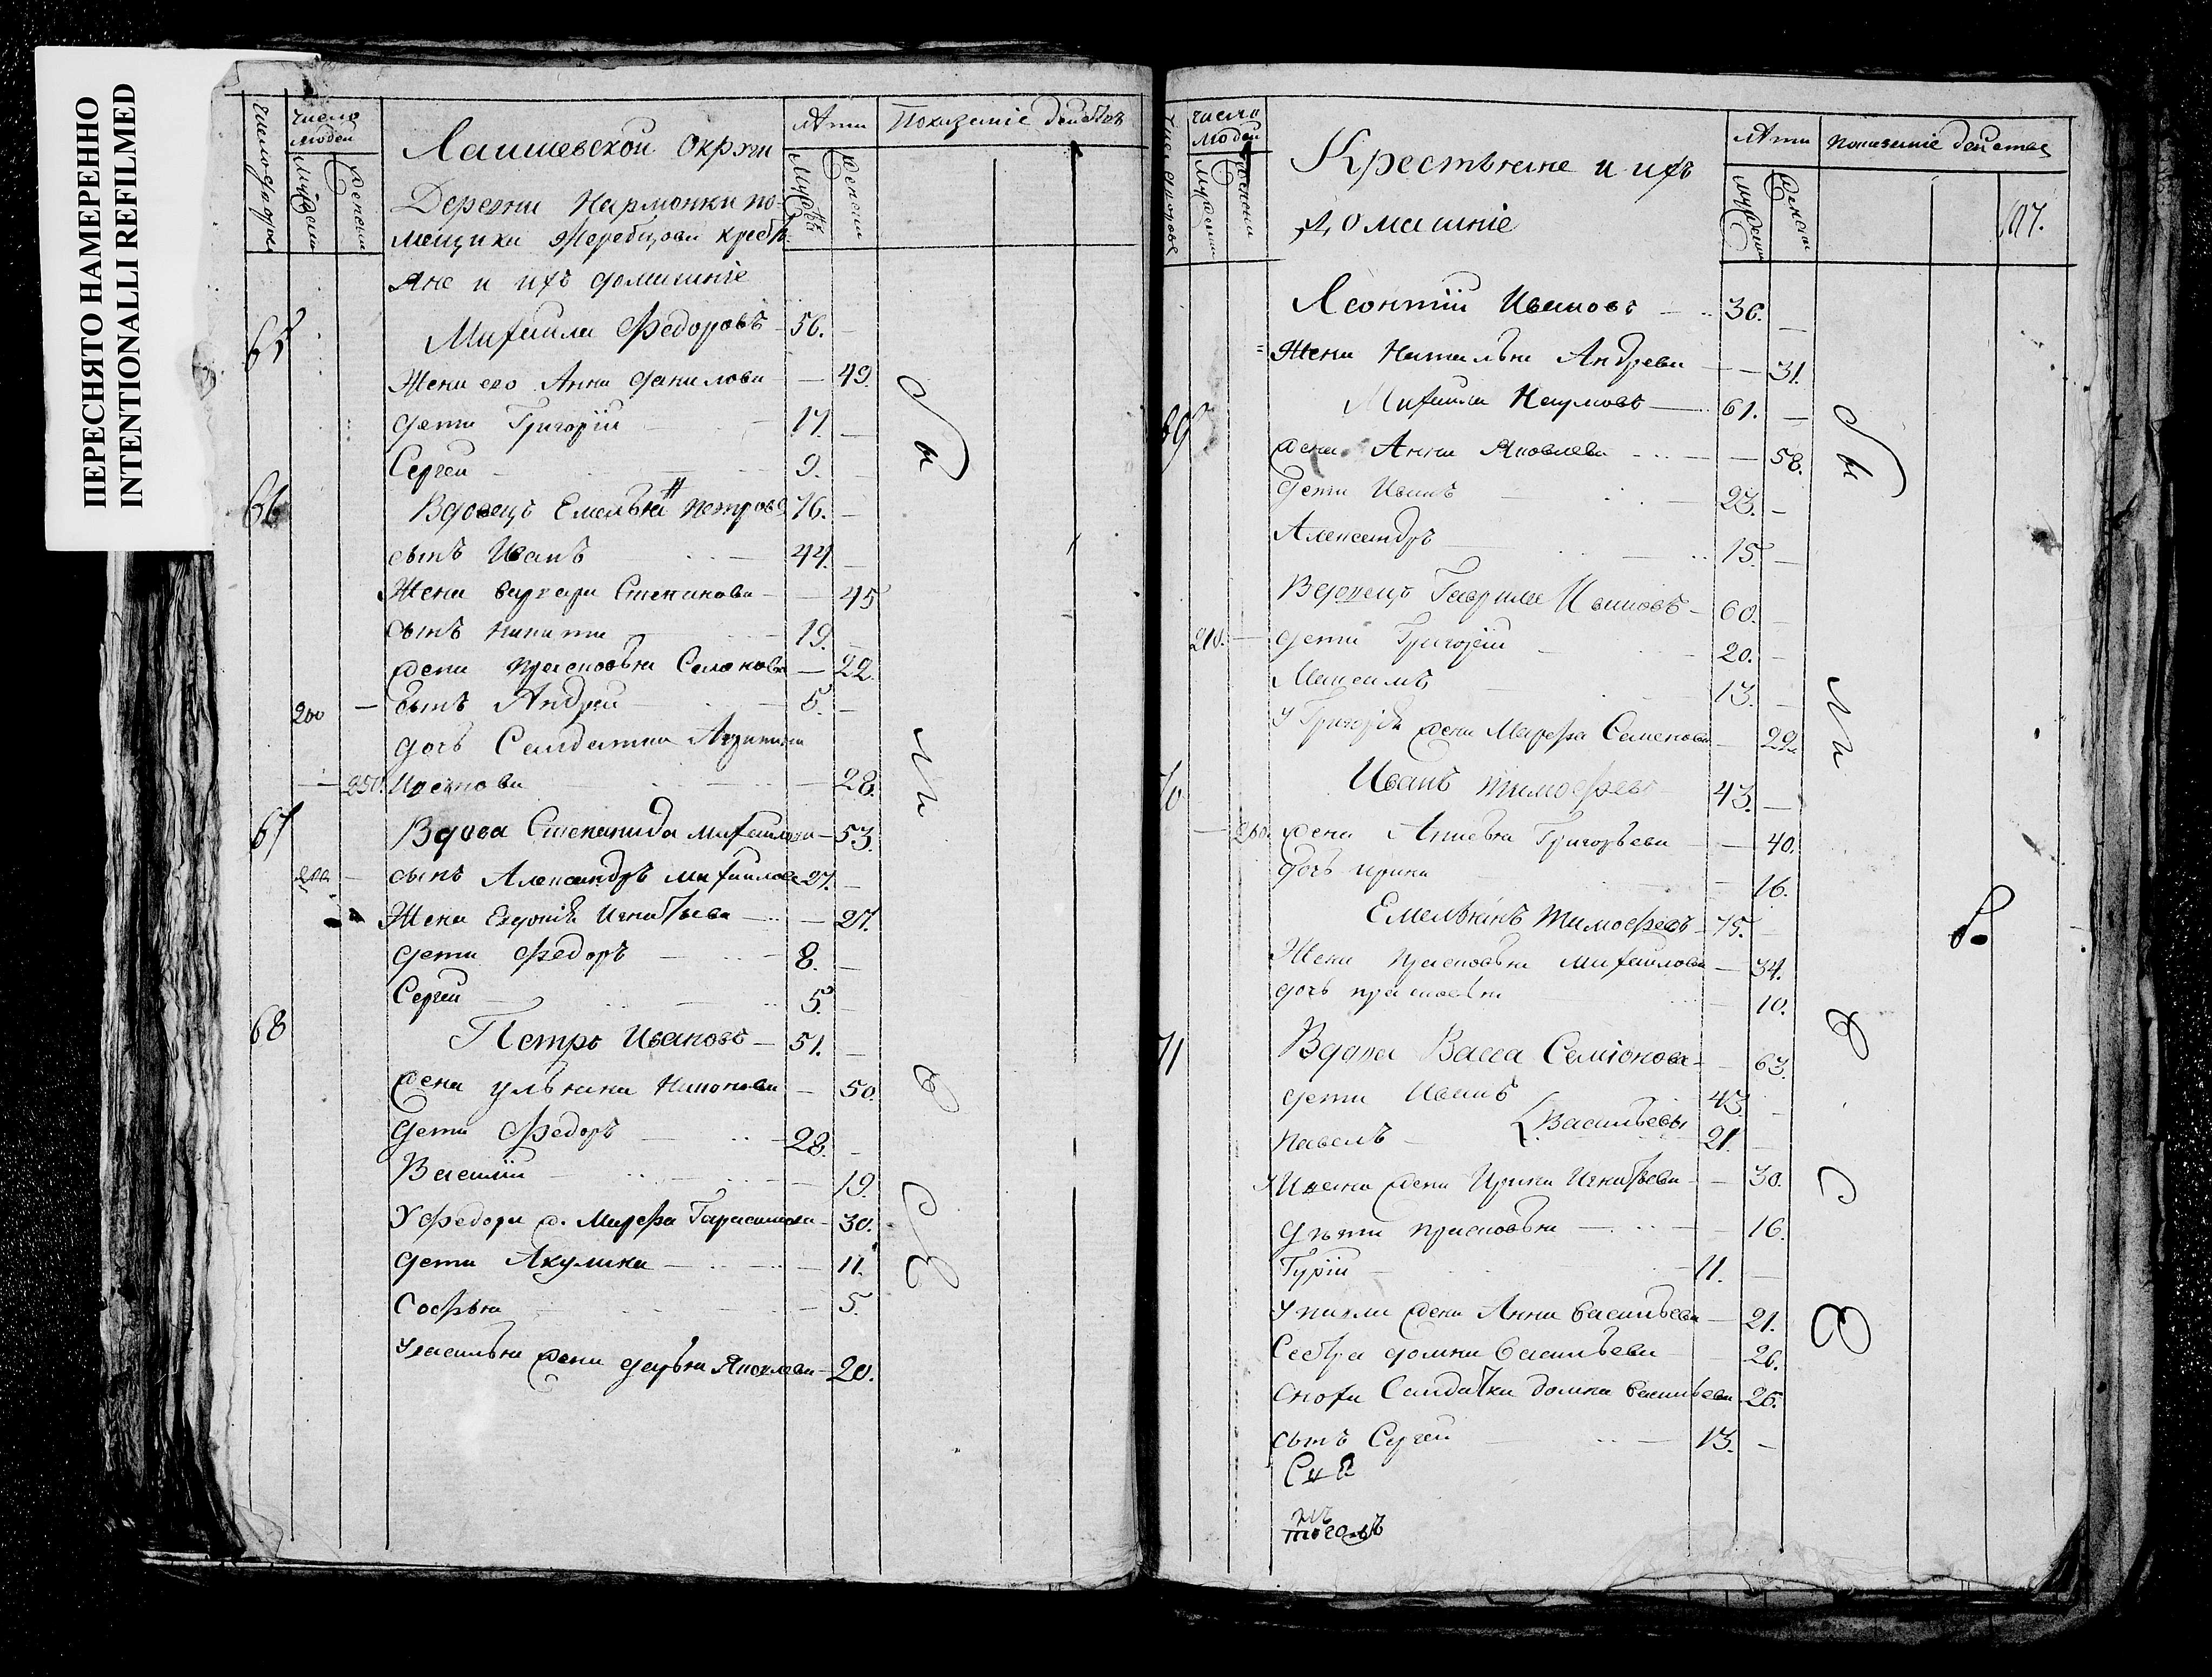 ПЕРЕСНЯТО НАМЕРЕННО
INTENTIONALLI REFILMED
Число дворовъ
Число людей
Мужеска
Женска
Лаишевской округи
Деревни Нармонки по-
мещика Жеребцова крестья
яне и ихъ домашніе
Лѣта
Мужска
Женска
Показаніе действа
65
Михаила Федоровъ 56. —
Жена его Анна Данилова — 49.
дети Григорій 17. —
Сергей 9. —
66
Вдовецъ Емельян Петровъ 76. —
сынъ Иванъ 44. —
Жена варвара Степанова — 45
сынъ никита 19. —
жена прасковья Семенова — 22.
200 — сынъ Андрей 5. —
дочь Салдатка
250. Иванова — 28.
67
Вдова Степанида михайлова — 53.
сынъ Александръ михайловъ 27. —
Жена Евдокія Игнатьева — 27.
дети Федоръ 8. —
Сергей 5. —
68
Петръ Ивановъ 51. —
жена ульяна — 50.
дети Федоръ 28. —
Василій — 19.
У Федора ж. Марфа Гарасимова — 30.
дети Акулина — 11.
Софья — 5.
Увасилья жена дарья Яковлева — 20.
Были
у
и
с
Число дворовъ
Число людей
Мужеска
Женска
Крестьяне и ихъ
домашніе
Лѣта
Мужеска
Женска
показаніе действа
107.
Леонтій Ивановъ 36. —
Жена Наталья Андреева — 31.
69
Михаила Наумовъ 61. —
жена Анна Яковлева — 58.
дети Иванъ 23. —
Александръ 15. —
Вдовецъ Гаврила Ивановъ 60. —
210. — дети Григорій 20. —
Максимъ 13. —
У Григорья жена Марфа Семенова — 29.
70
Иванъ тимофеевъ 43. —
— 260. жена Григорьева — 40.
дочь ирина — 16.
Емельянъ тимофеевъ 75. —
Жена прасковья михайлова — 34.
дочь прасковья — 10.
71
Вдова Васса Семіонова — 63.
дети Иванъ 43. —
Павелъ { Васильевы 21. —
У Ивана жена Ирина Игнатьева — 30.
дѣти прасковья — 16.
Гурій 11. —
У павла жена Анна васильева — 21.
Сестра домна васильева 26.
сноха Салдатка домна васильева 26.
сынъ Сергей 13. —